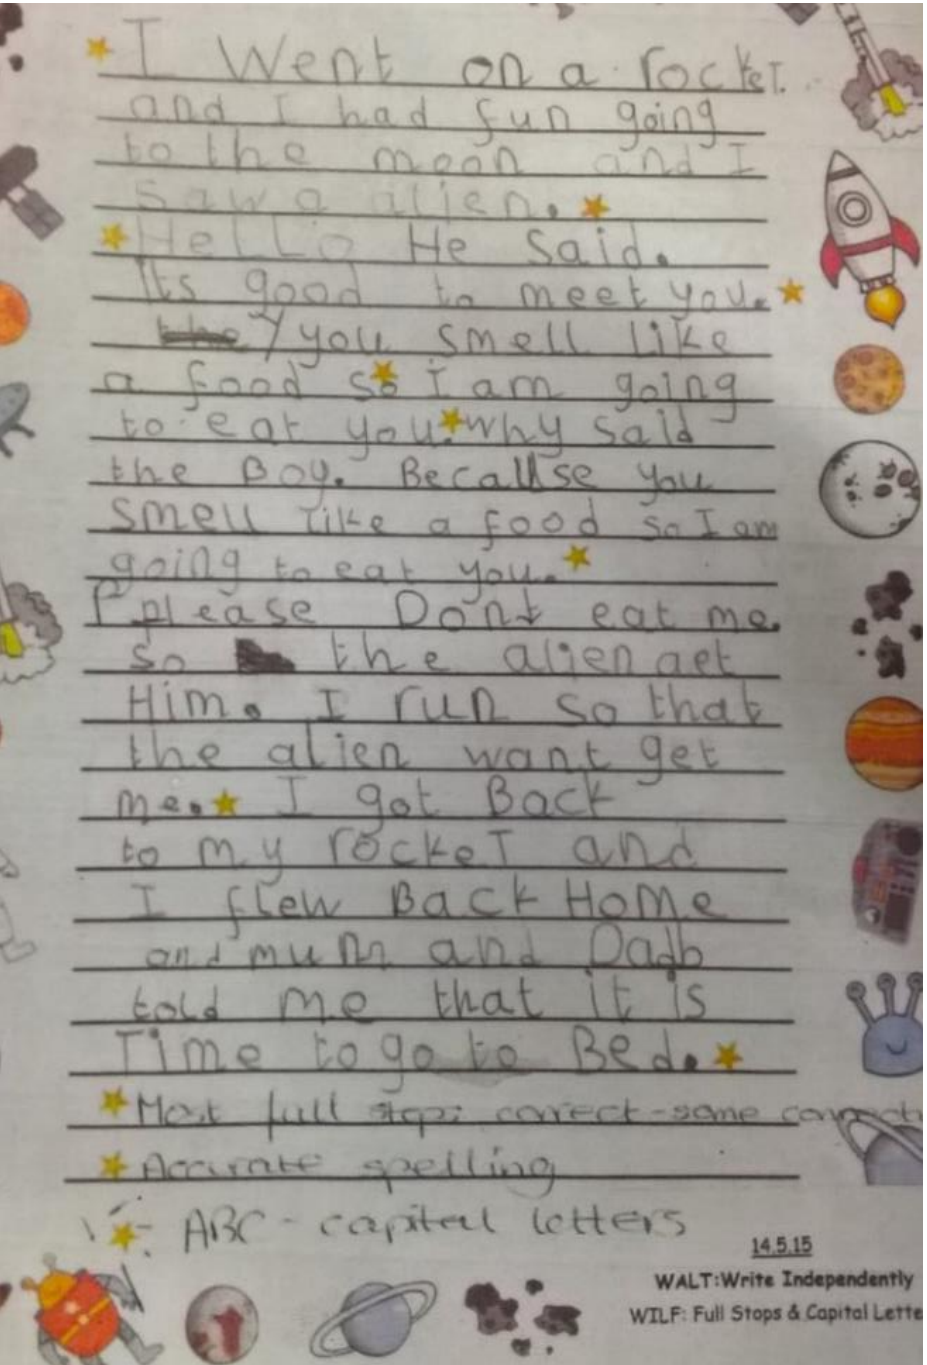 I Went on a rockeT.
and I had fun going
to the moon and I
saw a alien.
Hello He said.
Its good to meet you.
you smell like
a food so I am going
to eat you. why said
the Boy. Because you
smell like a food so I am
going to eat you.
Please Dont eat me.
so the alien aet
Him. I run so that
the alien want get
me. I got Back
to my rockeT and
I flew Back Home
and mum and Dadb
told me that it is
Time to go to Bed.
Most full stops correct - some
Accurate spelling
ABC - capital letters
14.5.15
WALT:Write Independently
WILF: Full Stops & Capital Lette